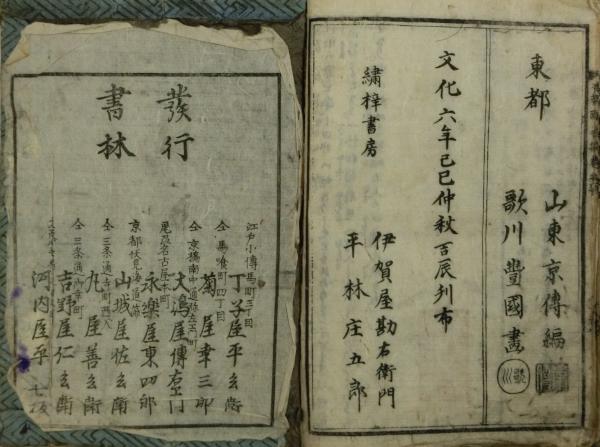 東都
山東京傳編
歌川豐國畫
文化六年己巳仲秋吉辰刋布
繡梓書房
伊賀屋勘右衛門
平林庄五郎
發行
書林
江戸小傳馬町三丁目
丁子屋平兵衛
仝 馬喰町四丁目
菊屋幸三郎
大嶋屋傳右衛門
尾州名古屋本町
永樂屋東四郎
山城屋佐兵衛
仝 三条通寺町西入
丸屋善兵衛
仝 三条通御幸町
吉野屋仁兵衛
河内屋平七板